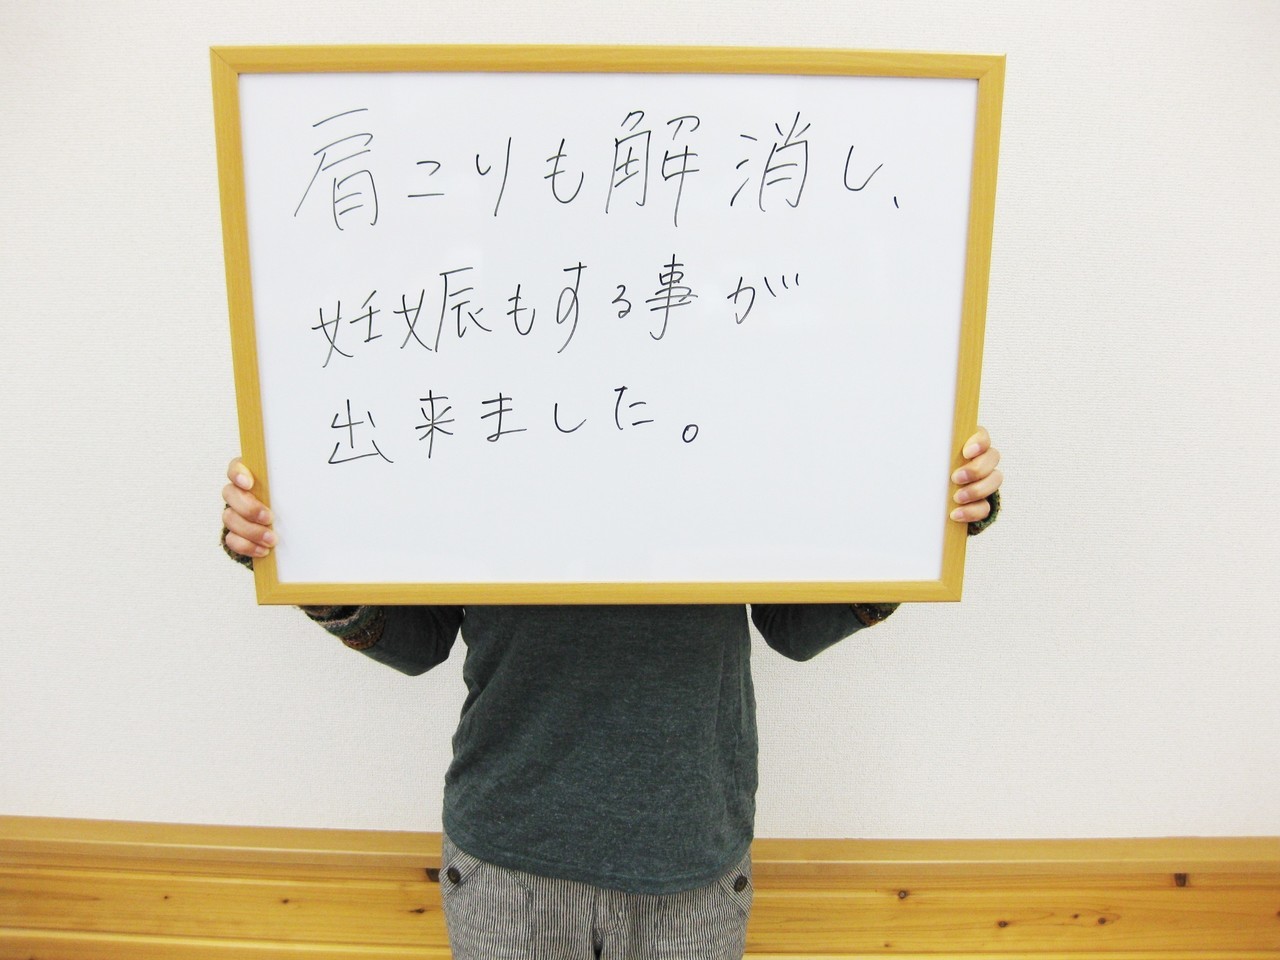 肩こりも解消し、
妊娠もする事が
出来ました。